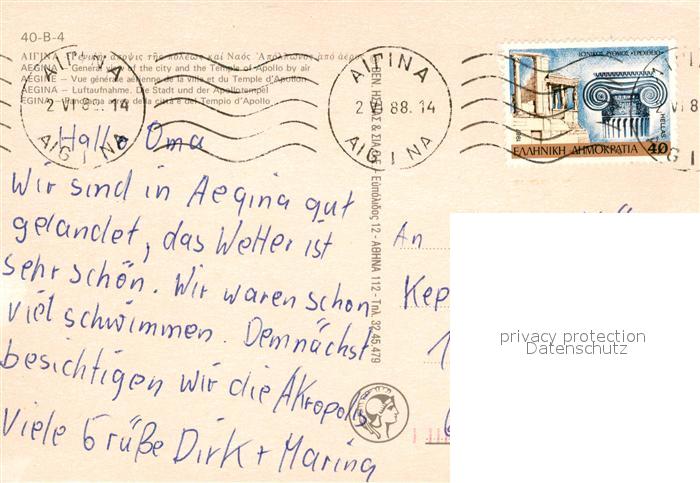 40-B-4
ΑΙΓΙΝΑ
AEGINA – General view of the city and the Temple of Apollo by air
AEGINE – Vue générale aérienne de la ville et du Temple d'Apollon
AEGINA – Luftaufnahme. Die Stadt und der Apollotempel
EGINA – Panorama aereo della città e del Tempio d'Apollo
ΑΙΓΙΝΑ
2 VI 8 .14
AIGINA
ΑΙΓΙΝΑ
2 VI 88.14
AIGINA
ΙΩΝΙΚΟΣ ΡΥΘΜΟΣ-ΕΡΕΧΘΕΙΟ
HELLAS
ΕΛΛΗΝΙΚΗ ΔΗΜΟΚΡΑΤΙΑ 40
Hallo Oma
Wir sind in Aegina gut
gelandet, das Wetter ist
sehr schön. Wir waren schon
viel schwimmen. Demnächst
besichtigen wir die Akropolis
Viele Grüße Dirk + Marina
Εὐπόλιδος 12 - ΑΘΗΝΑ 112 - Τηλ. 32.45.479
An
Kep
privacy protection
Datenschutz